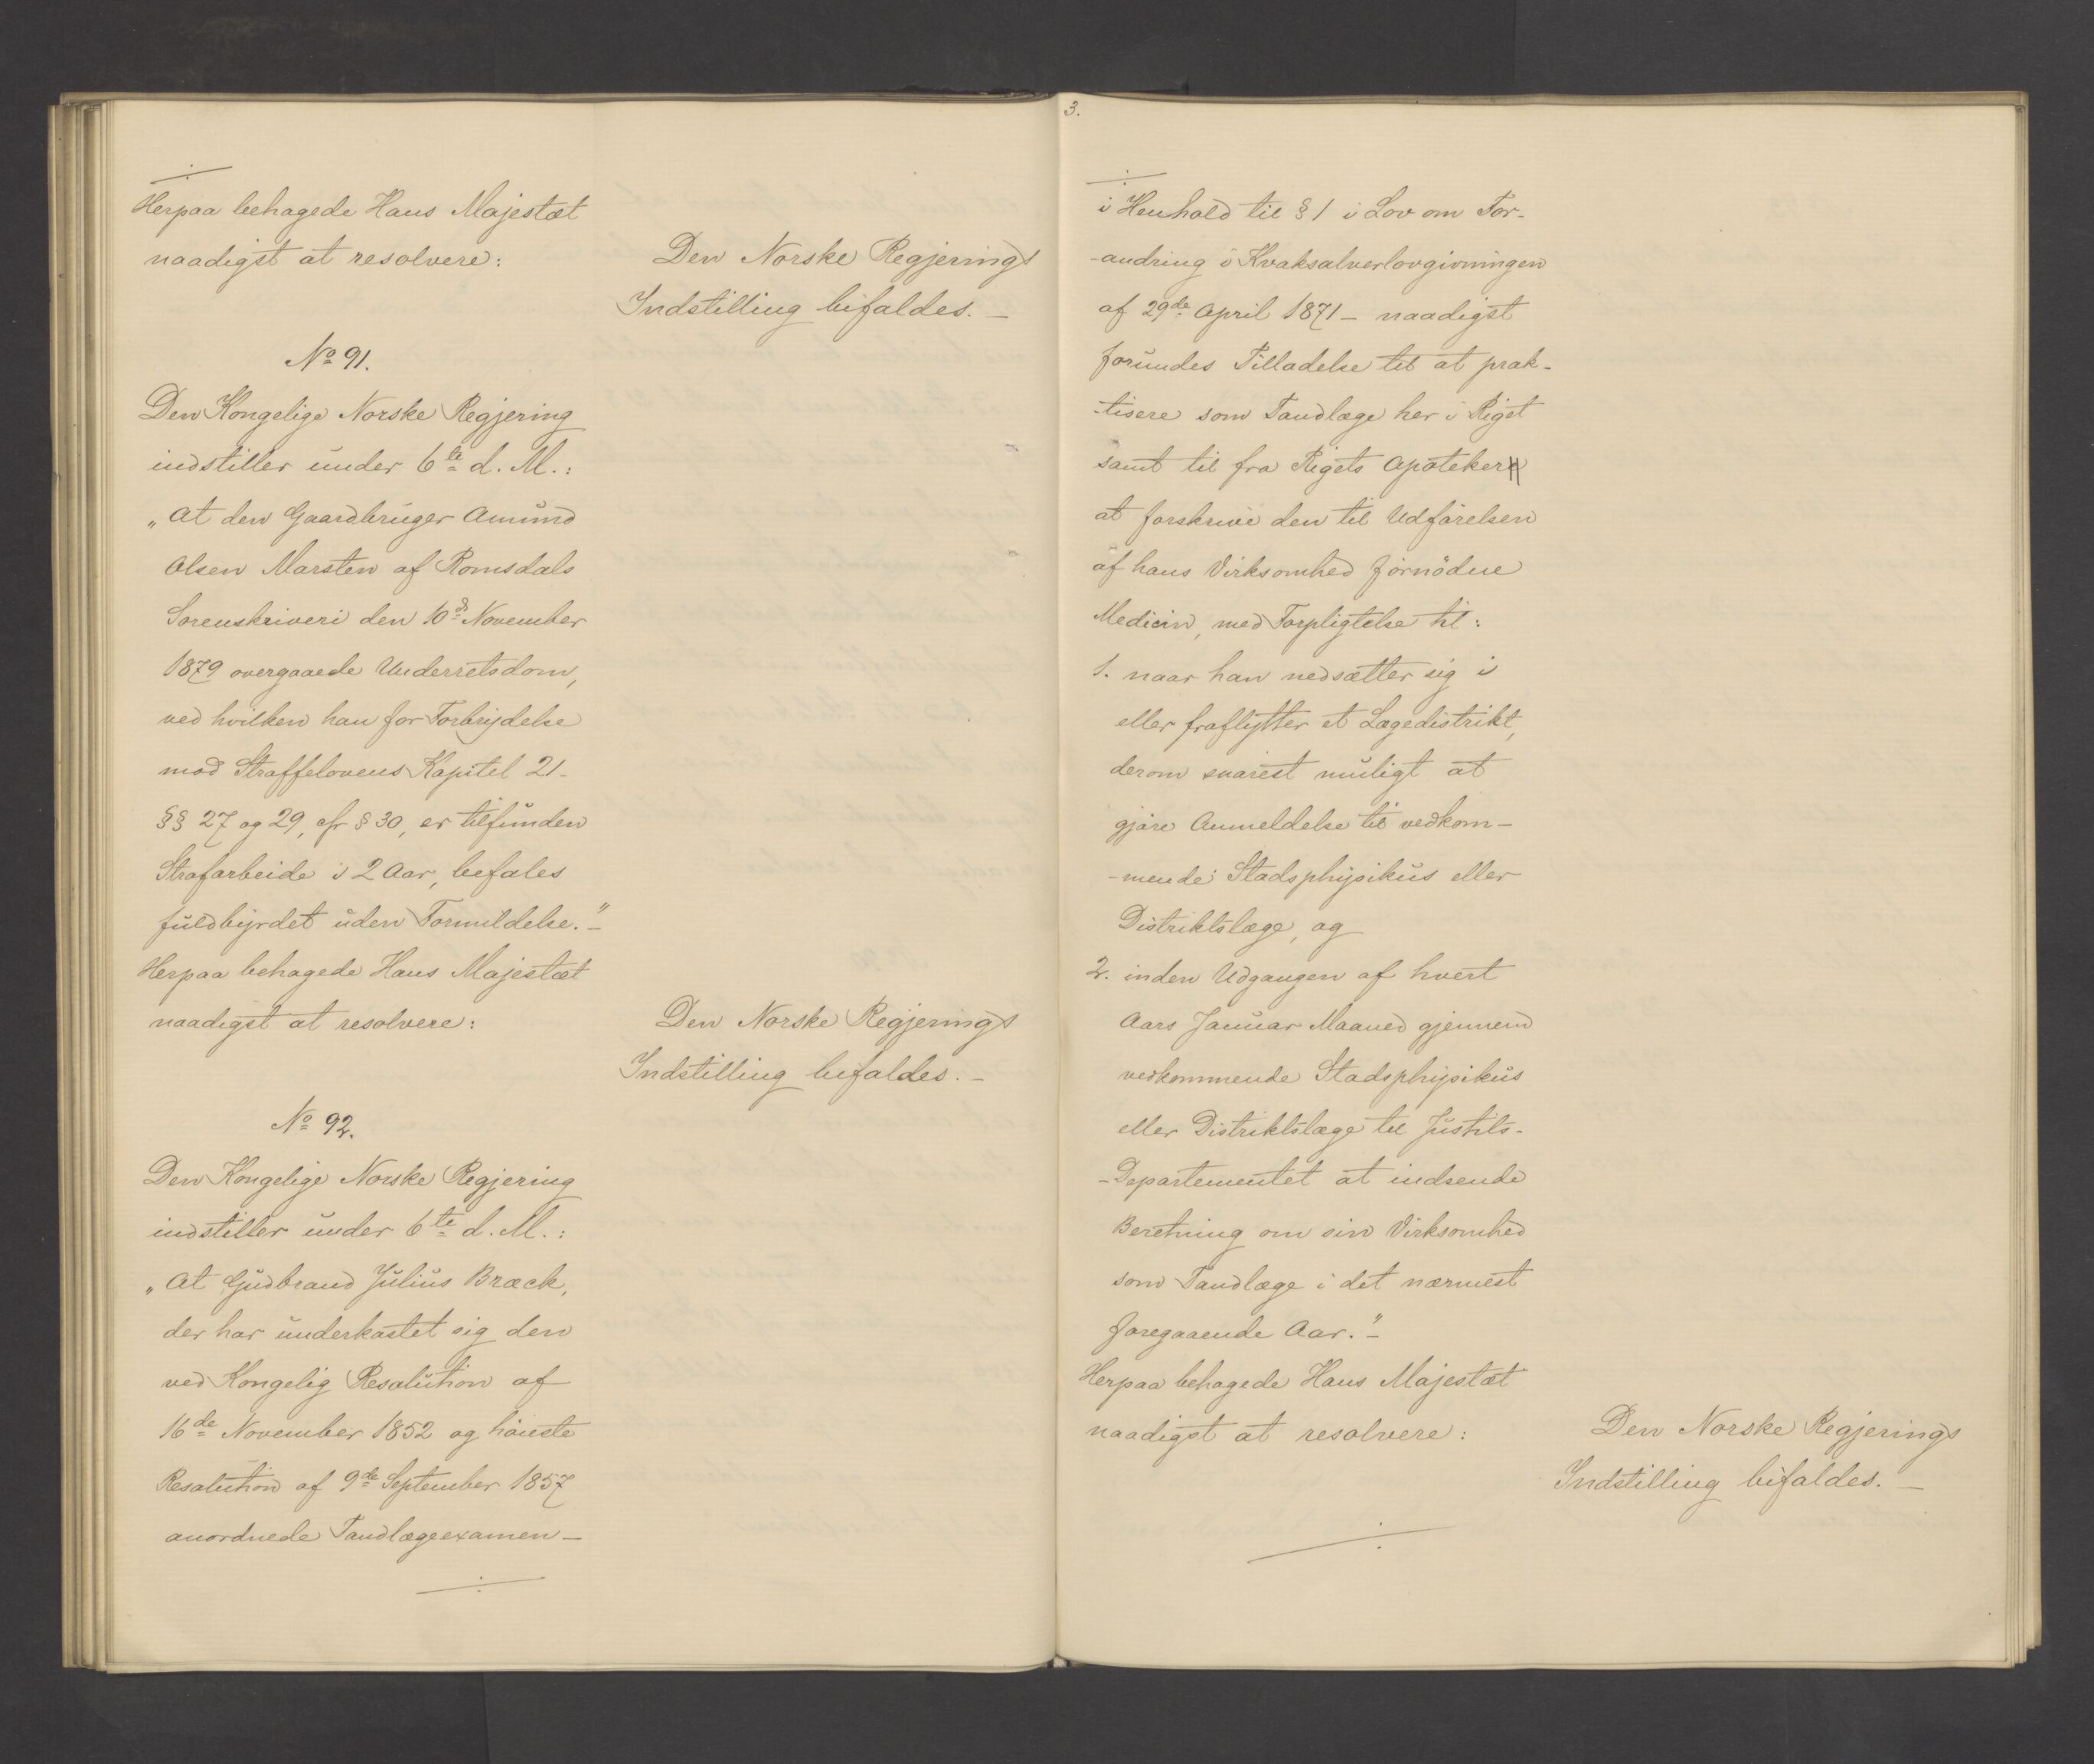 Herpaa behagede Hans Majestæt
naadigst at resolvere:
Den Norske Regjerings
Indstilling bifaldes. -
No 91.
Den Kongelige Norske Regjering
indstiller under 6te d. M.:
„At den Gaardbruger Amund
Olsen Marsten af Romsdals
Sorenskriveri den 10de November
1879 overgaaede Underretsdom,
ved hvilken han for Forbrydelse
mod Straffelovens Kapitel 21-
§§ 27 og 29, cfr § 30, er tilfunden
Strafarbeide i 2 Aar, befales
fuldbyrdet uden Formildelse." -
Herpaa behagede Hans Majestæt
naadigst at resolvere:
Den Norske Regjerings
Indstilling bifaldes. -
No 92.
Den Kongelige Norske Regjering
indstiller under 6te d. M.:
„At Gudbrand Julius Bræck,
der har underkastet sig den
ved Kongelig Resolution af
16de November 1852 og høieste
Resolution af 9de September 1857
anordnede Tandlægeexamen -
3.
i Henhold til § 1 i Lov om For-
-andring i Kvaksalverlovgivningen
af 29de April 1871 - naadigst
forundes Tilladelse til at prak-
-tisere som Tandlæge her i Riget
samt til fra Rigets Apoteker
at forskrive den til Udførelsen
af hans Virksomhed fornødne
Medicin, med Forpligtelse til:
1. naar han nedsætter sig i
eller fraflytter et Lægedistrikt,
derom snarest muligt at
gjøre Anmeldelse til vedkom-
-mende Stadsphysikus eller
Distriktslæge, og
2. inden Udgangen af hvert
Aars Januar Maaned gjennem
vedkommende Stadsphysikus
eller Distriktslæge til Justits-
-Departementet at indsende
Beretning om sin Virksomhed
som Tandlæge i det nærmest
foregaaende Aar." -
Herpaa behagede Hans Majestæt
naadigst at resolvere:
Den Norske Regjerings
Indstilling bifaldes. -